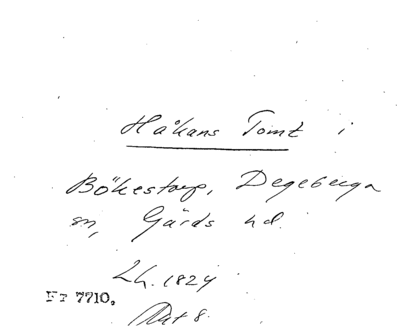 Håkans Tomt i
Bökestorp, Degeberga
sn, Gärds hd.
Lh. 1824
Fr 7710.
8.